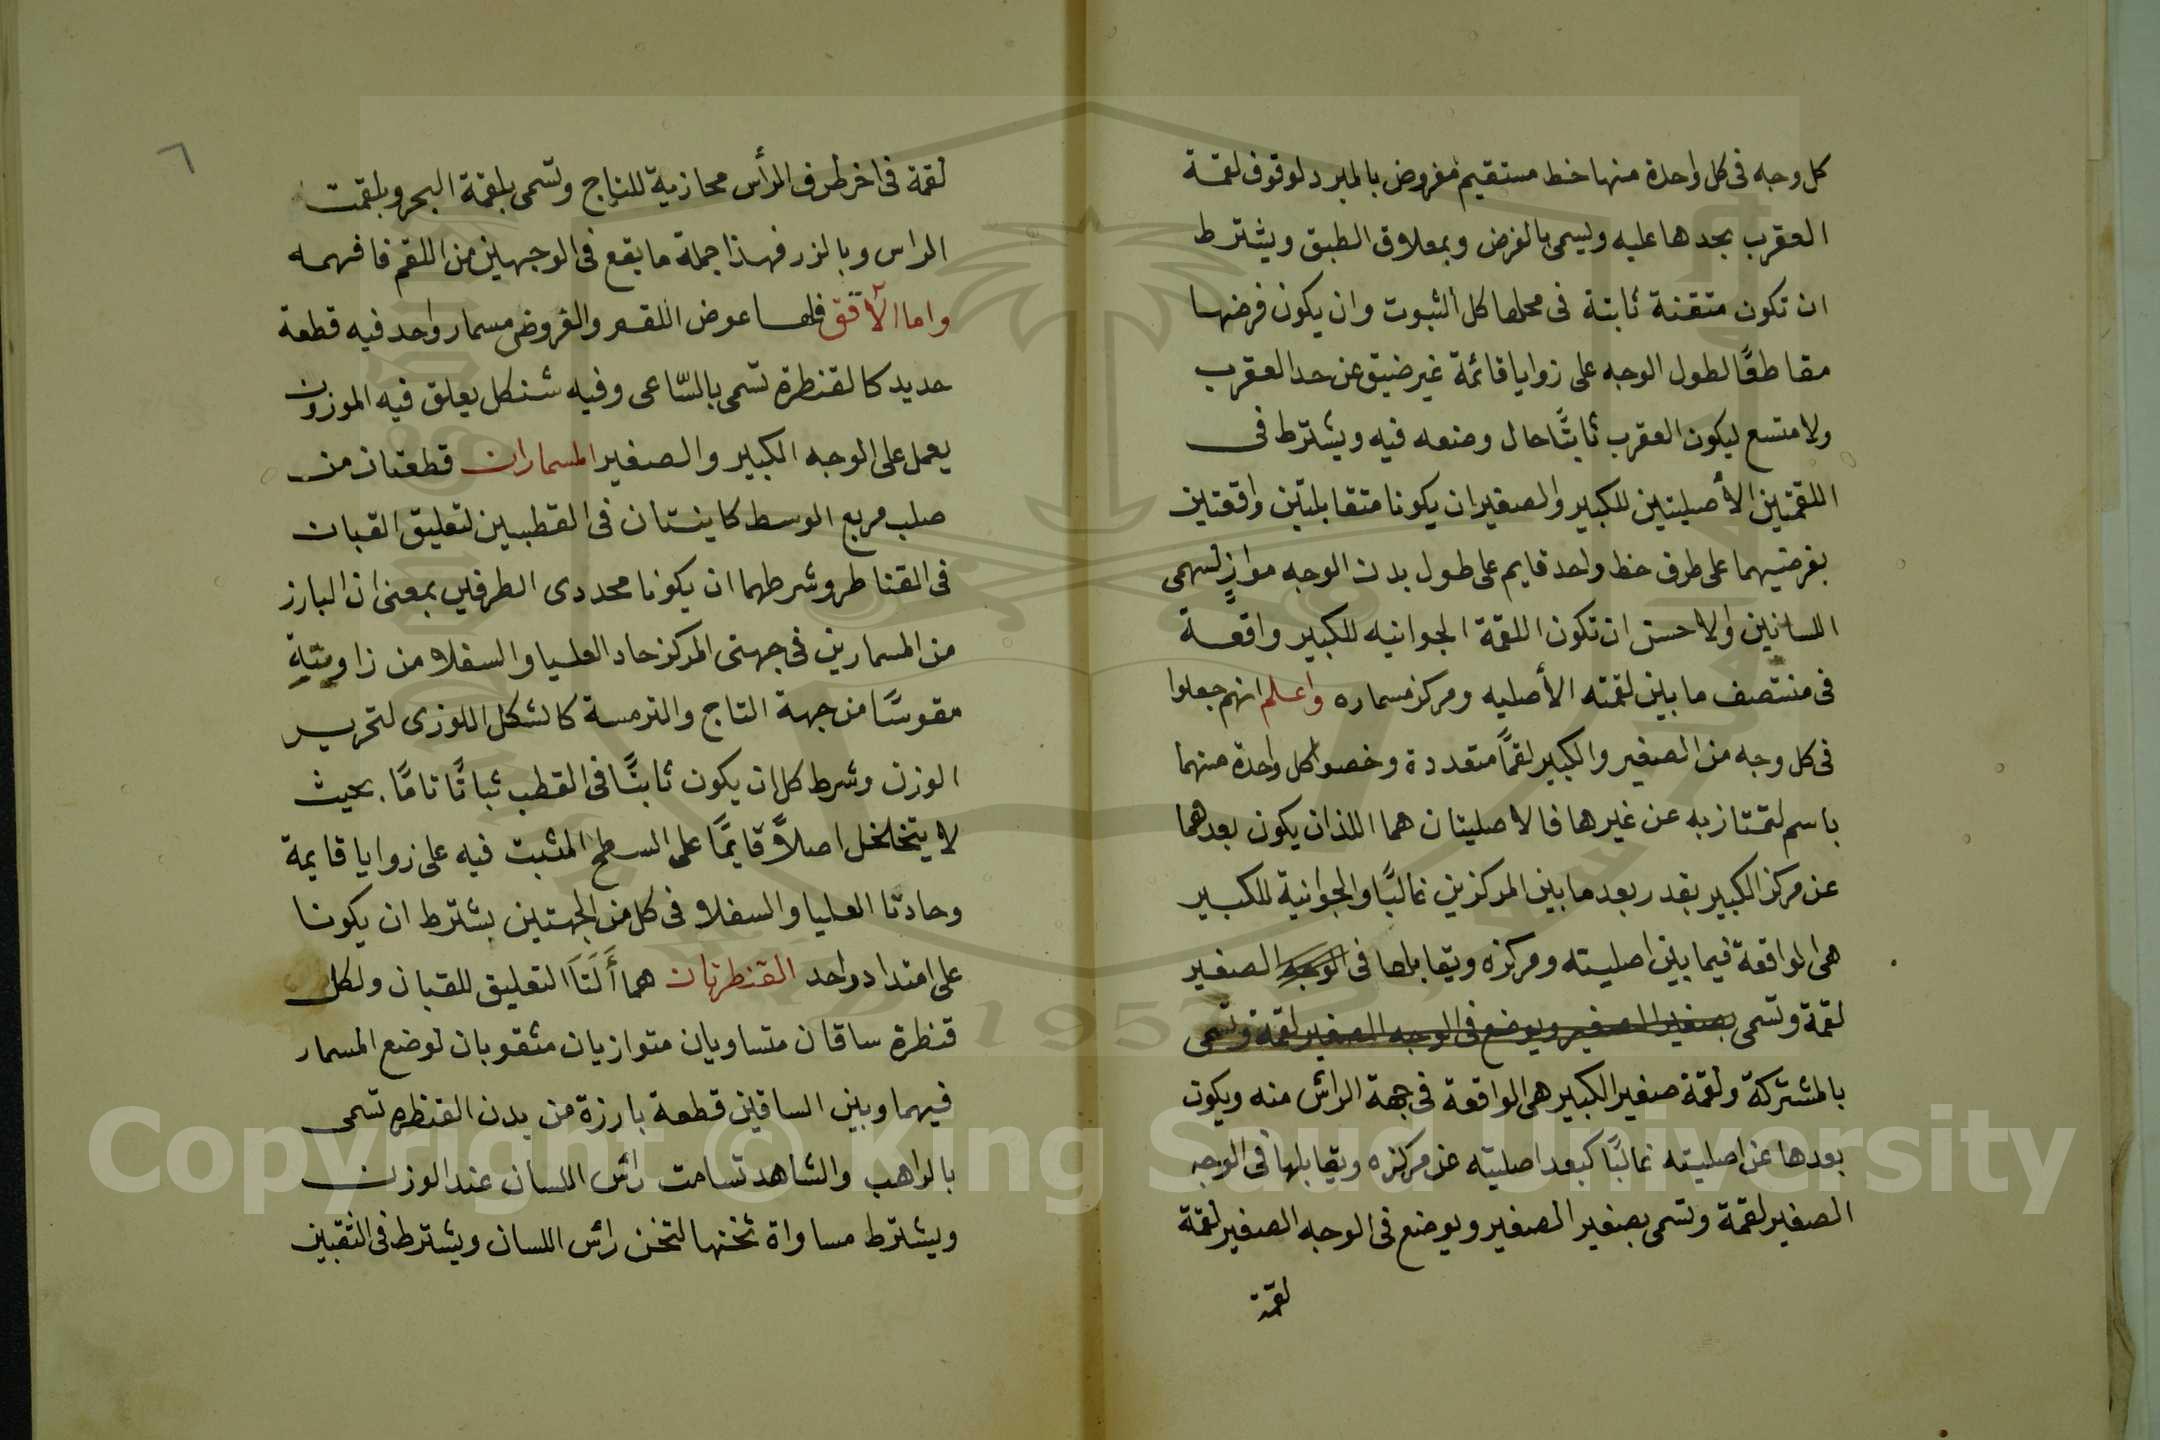 كل وجه فى كل واحدة منها خط مستقيم مفروض بالمبرد لوقوف لقمة
العقرب بحدها عليه ويسمى بالفرض وبمعلاق الطبق ويشترط
ان تكون متقنة ثابتة فى محلها كل الثبوت وان يكون فرضها
مقاطعًا لطول الوجه على زوايا قائمة غير ضيق عن حد العقرب
ولا متسع ليكون العقرب ثابتًا حال وضعه فيه ويشترط فى
اللقمتين الأصليتين للكبير والصغير ان يكونا متقابلتين واقعتين
بفرضيهما على طرف خط واحد قايم على طول بدن الوجه موازٍ لسهمى
اللسانين والاحسن ان تكون اللقمة الجوانيه للكبير واقعة
فى منتصف ما بين لقمته الأصليه ومركز مسماره واعلم انهم جعلوا
فى كل وجه من الصغير والكبير لقمًا متعددة وخصوا كل واحدة منهما
باسم لتمتاز به عن غيرها فالاصليتان هما اللذان يكون بعدهما
عن مركز الكبير بقدر بعد ما بين المركزين غالبًا والجوانية للكبير
هى الواقعة فيما بين اصليته ومركزه ويقابلها فى الوجه الصغير
لقمة وتسمى بصغير الصغير ويوضع فى الوجه الصغير لقمة وتسمى
بالمشتركة ولقمة صغير الكبير هى الواقعة فى جهة الراس منه ويكون
بعدها عن اصليته غالبًا كبعد اصليته عن مركزه ويقابلها فى الوجه
الصغير لقمة وتسمى بصغير الصغير ويوضع فى الوجه الصغير لقمة
لقمة
٦
لقمة فى اخر طرف الرأس محازية للتاج وتسمى بلقمة البحر وبلقمت
الراس وبالزر فهذا جملة ما يقع فى الوجهين من اللقم فافهمه
واما الآقق فلها عوض اللقم والفروض مسمار واحد فيه قطعة
حديد كالقنطرة تسمى بالسّاعى وفيه شنكل يعلق فيه الموزون
يعمل على الوجه الكبير والصغير المسماران قطعتان من
صلب مربع الوسط كاينتان فى القطبين لتعليق القبان
فى القناطر وشرطهما ان يكونا محددى الطرفين بمعنى ان البارز
من المسمارين فى جهتى المركز حاد العليا والسفلا من زاويتيه
مقوسًا من جهة التاج والترمسة كالشكل اللوزى لتحرير
الوزن وشرط كل ان يكون ثابتًا فى القطب ثباتًا تامًا بحيث
لا يتخلخل اصلاً قايمًا على السطح المثبت فيه على زوايا قايمة
وحادتا العليا والسفلا فى كل من الجهتين بشترط ان يكونا
على امتداد واحد القنطرتان هما أَلَتَا التعليق للقبان ولكل
قنطرة ساقان متساويان متوازيان مثقوبان لوضع المسمار
فيهما وبين الساقين قطعة بارزة من بدن القنطره تسمى
بالراهب والشاهد تسامت رأس اللسان عند الوزن
ويشترط مساواة ثخنها لتخن رأس اللسان ويشترط فى الثقبين
Copyright © King Saud University
1957